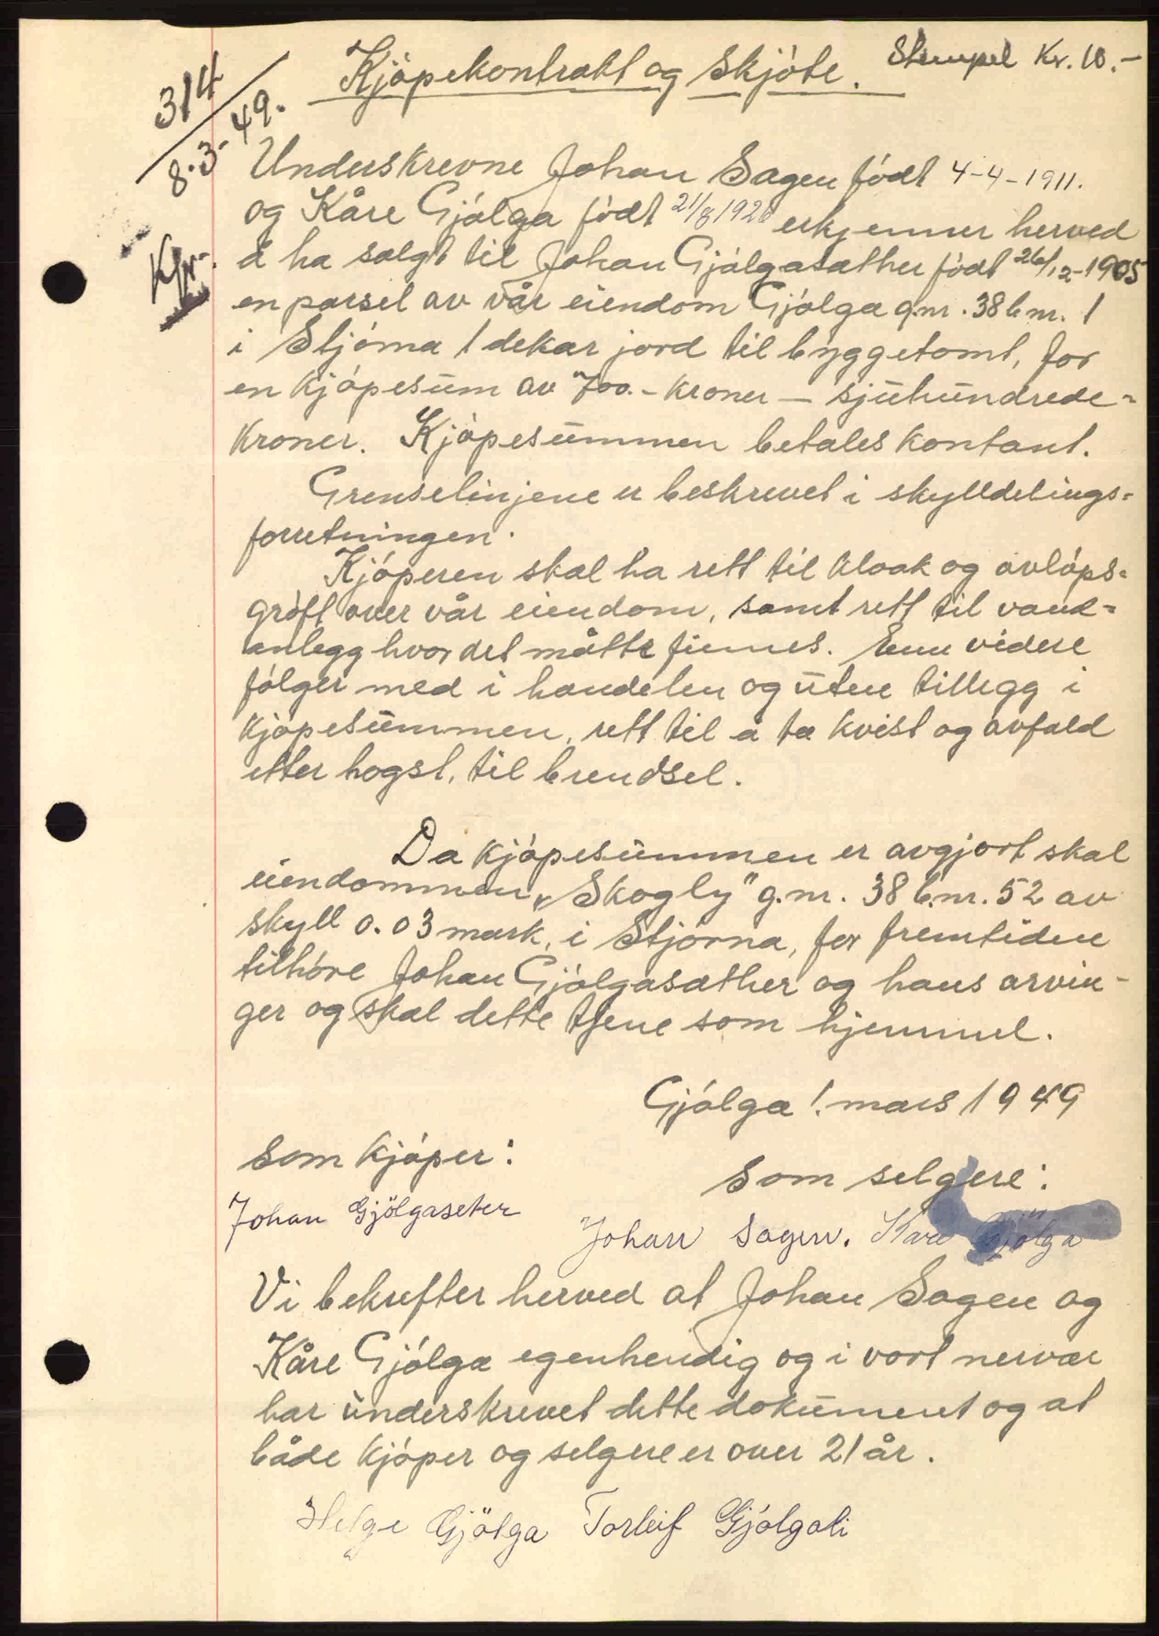 Kjöpekontrakt og Skjöte. Stempel Kr. 10.-
314
8.3-49.
Underskrevne Johan Sagen födt 4-4-1911.
Kfr.
og Kåre Gjölga födt 21/8 192 erkjenner herved
å ha solgt til Johan Gjölgasæther födt 26/12-1905
en parsel av vår eiendom Gjölga g.nr. 38 b.nr. 1
i Stjörna 1 dekar jord til byggetomt, for
en kjöpesum av 700.- kroner — sjuhundrede-
kroner. Kjöpesummen betales kontant.
Grenselinjene er beskrevet i skylldelings-
forretningen.
Kjöperen skal ha rett til kloak og avlöps-
gröft over vår eiendom, samt rett til vand-
anlegg hvor det måtte finnes. Enn videre
fölger med i handelen og uten tillegg i
kjöpesummen, rett til å ta kvist og avfald
etter hogst, til brendsel.
Da kjöpesummen er avgjort skal
eiendommen „Skogly" g.nr. 38 b.nr. 52 av
skyll 0.03 mark, i Stjörna, for fremtiden
tilhöre Johan Gjölgasæther og hans arvin-
ger og skal dette tjene som hjemmel.
Gjölga 1. mars 1949
Som kjöper:
Som selgere:
Johan Gjölgaseter
Johan Sagen. Kåre Gjölga
Vi bekrefter herved at Johan Sagen og
Kåre Gjölga egenhendig og i vort nervær
har underskrevet dette dokument og at
både kjöper og selgere er over 21 år.
Helge Gjölga Torleif Gjölgali